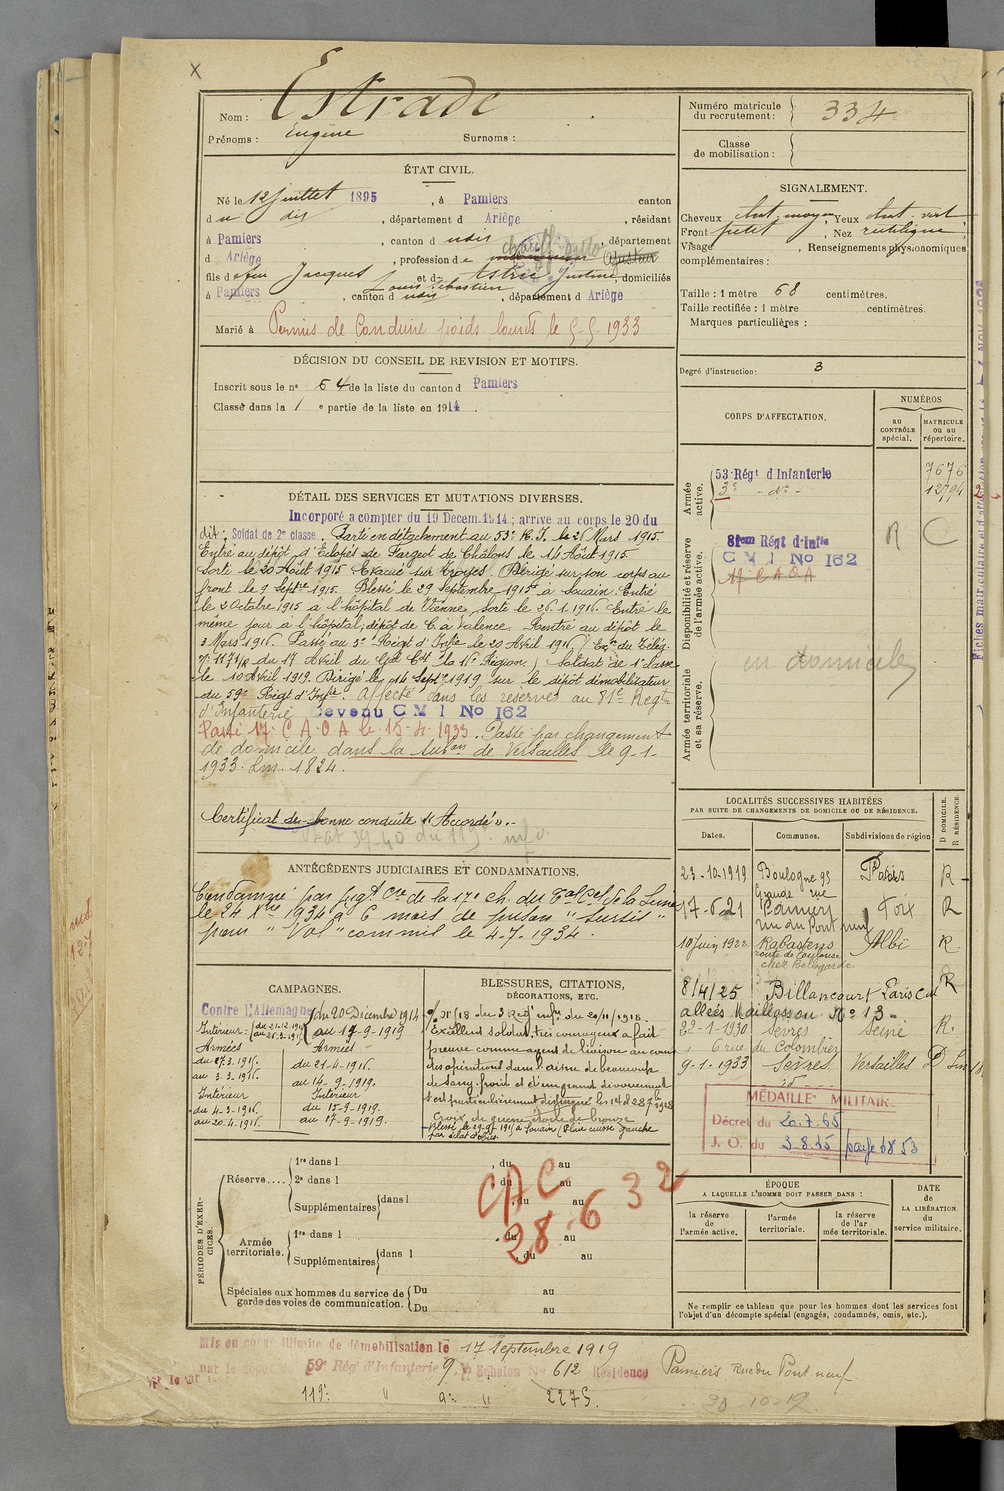 X
Nom : Estrade
Prénoms : Eugène Surnoms :
Numéro matricule du recrutement : 334
Classe de mobilisation :
ÉTAT CIVIL.
Né le 12 juillet 1895, à Pamiers canton
d u dis, département d Ariège, résidant
à Pamiers, canton d udis, département
d Ariège, profession de chauff. auto
fils de feu Jacques et de Astrié Justine, domiciliés
Louis Sébastien
à Pamiers, canton d udis, département d Ariège
Marié à
Permis de Conduire poids lourds le 5-5-1933
SIGNALEMENT.
Cheveux chat. moyen, Yeux chat. vert
Front petit, Nez rectiligne
Visage , Renseignements physionomiques
complémentaires :
Taille : 1 mètre 68 centimètres.
Taille rectifiée : 1 mètre centimètres.
Marques particulières :
Degré d'instruction : 3
DÉCISION DU CONSEIL DE REVISION ET MOTIFS.
Inscrit sous le n° 64 de la liste du canton d Pamiers
Classé dans la 1 e partie de la liste en 1914.
DÉTAIL DES SERVICES ET MUTATIONS DIVERSES.
Incorporé a compter du 19 Decem. 1914 ; arrivé au corps le 20 du
dit. Soldat de 2e classe. Parti en détachement au 53e R.I. le 26 Mars 1915.
Entré au dépôt d'Eclopés de Fargot de Châlons le 14 Août 1915.
Sorti le 20 Août 1915 Evacué sur Troyes. Dirigé sur son corps au
front le 9 Septbre 1915. Blessé le 29 Septembre 1915 à Souain. Entré
le 2 Octobre 1915 à l'hôpital de Vienne, Sorti le 26.1.1916. Entré le
même jour à l'hôpital, dépôt de C. à Valence. Rentré au dépôt le
3 Mars 1916. Passé au 3e Régt d'Inftie le 20 Avril 1916, Exon du Télég.
du 17 Avril du Gal Ct la 16e Région. Soldat de 1e classe
le 10 Avril 1919. Dirigé le 14 Septe 1919 sur le dépôt démobilisateur
du 59e Régt d'Inftie. Affecté dans les réserves au 81e Régt
d'Infanterie Devenu C M I No 162
Passé 17e C.A.O.A le 15-4-1933. Passé par changement
de domicile dans la subon de Versailles le 9-1-
1933. Lm. 1824.
Certificat de bonne conduite "Accordé".-
CORPS D'AFFECTATION.
NUMÉROS
au CONTRÔLE spécial.
MATRICULE ou au répertoire.
Armée active.
53e Régt d'Infanterie 7676
3e - do - 12794
Disponibilité et réserve de l'armée active.
81em Régt d'Infie R C
C M I No 162
17e C A O A
Armée territoriale et sa réserve.
en domicile
ANTÉCÉDENTS JUDICIAIRES ET CONDAMNATIONS.
Condamné par jugt cre de la 17e ch. du Tal Cel de la Seine
le 24 Xbre 1934 à 6 mois de prison "Sursis"
pour "Vol" commis le 4-7-1934.
LOCALITÉS SUCCESSIVES HABITÉES
PAR SUITE DE CHANGEMENTS DE DOMICILE OU DE RÉSIDENCE.
Dates. Communes. Subdivisions de région
D DOMICILE.
R RÉSIDENCE.
23-10-1919 Boulogne 93 Paris R
Grande rue
17-6-21 Pamiers Foix R
rue du Pont neuf
10 juin 1922 Rabastens Albi R
route de Toulouse
chez Bellegarde
8/4/25 Billancourt Paris R
allées Maillasson No 13
22-1-1930 Sèvres Seine R.
6 rue du Colombier
9-1-1933 Sèvres Versailles D
MÉDAILLE MILITAIRE
Décret du 20-7-65
J. O. du 3-8-65 page 6853
CAMPAGNES.
Contre L'Allemagne du 20 Décembre 1914
au 17-9-1919
Intérieur :
Armées Armées
du 27-3-1915. du 21-4-1916.
au 3-3-1916. au 14-9-1919.
Intérieur Intérieur
du 4-3-1916. du 15-9-1919.
au 20-4-1916. au 17-9-1919.
BLESSURES, CITATIONS,
DÉCORATIONS, ETC.
du 3e Régt infie du 20/11/1918.
Excellent soldat, très courageux a fait
preuve comme agent de liaison au cours
des opérations dans l'Aisne de beaucoup
de sang-froid et d'un grand dévouement
s'est particulièrement distingué
Croix de guerre étoile de bronze
Blessé le 29-9bre 1915 à Souain (Plaie cuisse gauche
par éclat d'obus.
PÉRIODES D'EXERCICES.
Réserve.... 1re dans l , du au
2e dans l , du au
Supplémentaires dans l , du au
Armée territoriale. 1re dans l , du au
Supplémentaires dans l , du au
Spéciales aux hommes du service de garde des voies de communication. Du au
Du au
CAC
28.6 32
ÉPOQUE
A LAQUELLE L'HOMME DOIT PASSER DANS :
la réserve de l'armée active.
l'armée territoriale.
la réserve de l'armée territoriale.
DATE de LA LIBÉRATION du service militaire.
Ne remplir ce tableau que pour les hommes dont les services font
l'objet d'un décompte spécial (engagés, condamnés, omis, etc.).
Mis en congé illimité de démobilisation le 17 Septembre 1919
par le dépôt 59e Rég' d'Infanterie 9. Echelon No 612 Résidence Pamiers Rue du Pont neuf
119e " a " 2275.
30 10-19